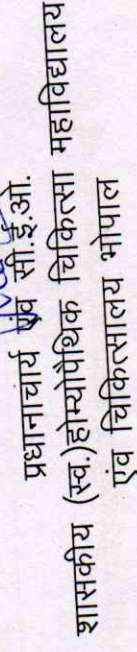 प्रधानाचार्य एवं सी.ई.ओ.
शासकीय (स्व.) होम्योपैथिक चिकित्सा महाविद्यालय
एंव चिकित्सालय भोपाल